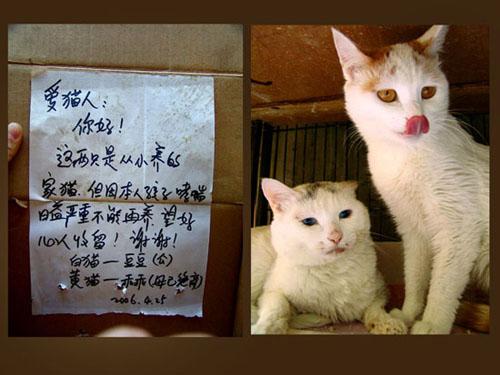 爱猫人:
你好!
这两只是从小养的
家猫.但因本人孩子哮喘
日益严重不能再养.望好
心人收留!谢谢!
白猫一豆豆(公)
黄猫一乖乖(母已绝育)
2006.4.25